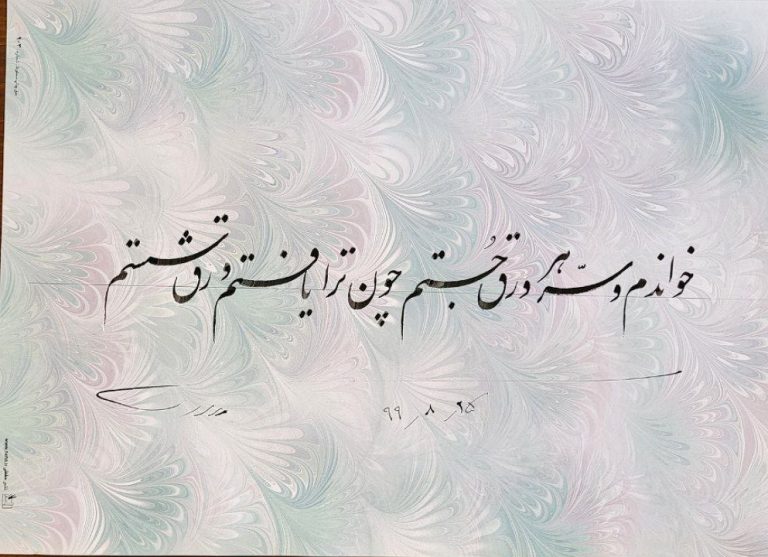 خواندم و سرّ هر ورق جُستم چون ترا یافتم ورق شستم
۹۹ ٫ ۸ ٫ ۲۵